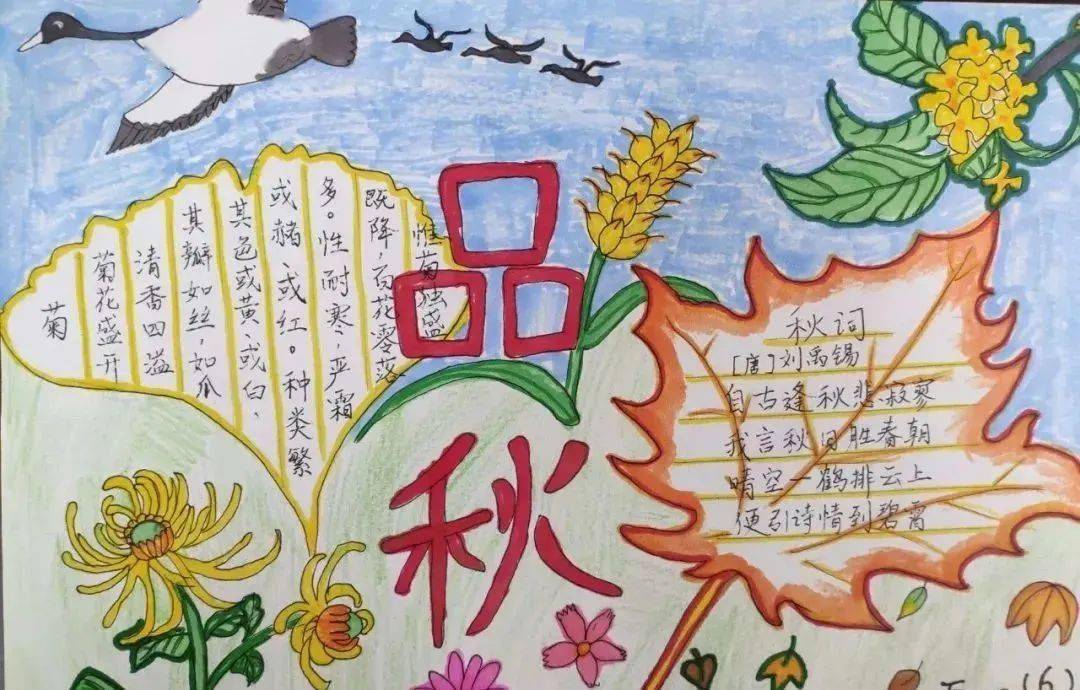 品秋
菊
菊花盛开
清香四溢
其瓣如丝,如爪
其色或黄、或白、
或赭、或红。种类繁
多。性耐寒,严霜
既降,百花零落
惟菊独盛
秋词
[唐]刘禹锡
自古逢秋悲寂寥
我言秋日胜春朝
晴空一鹤排云上
便引诗情到碧霄
(6)